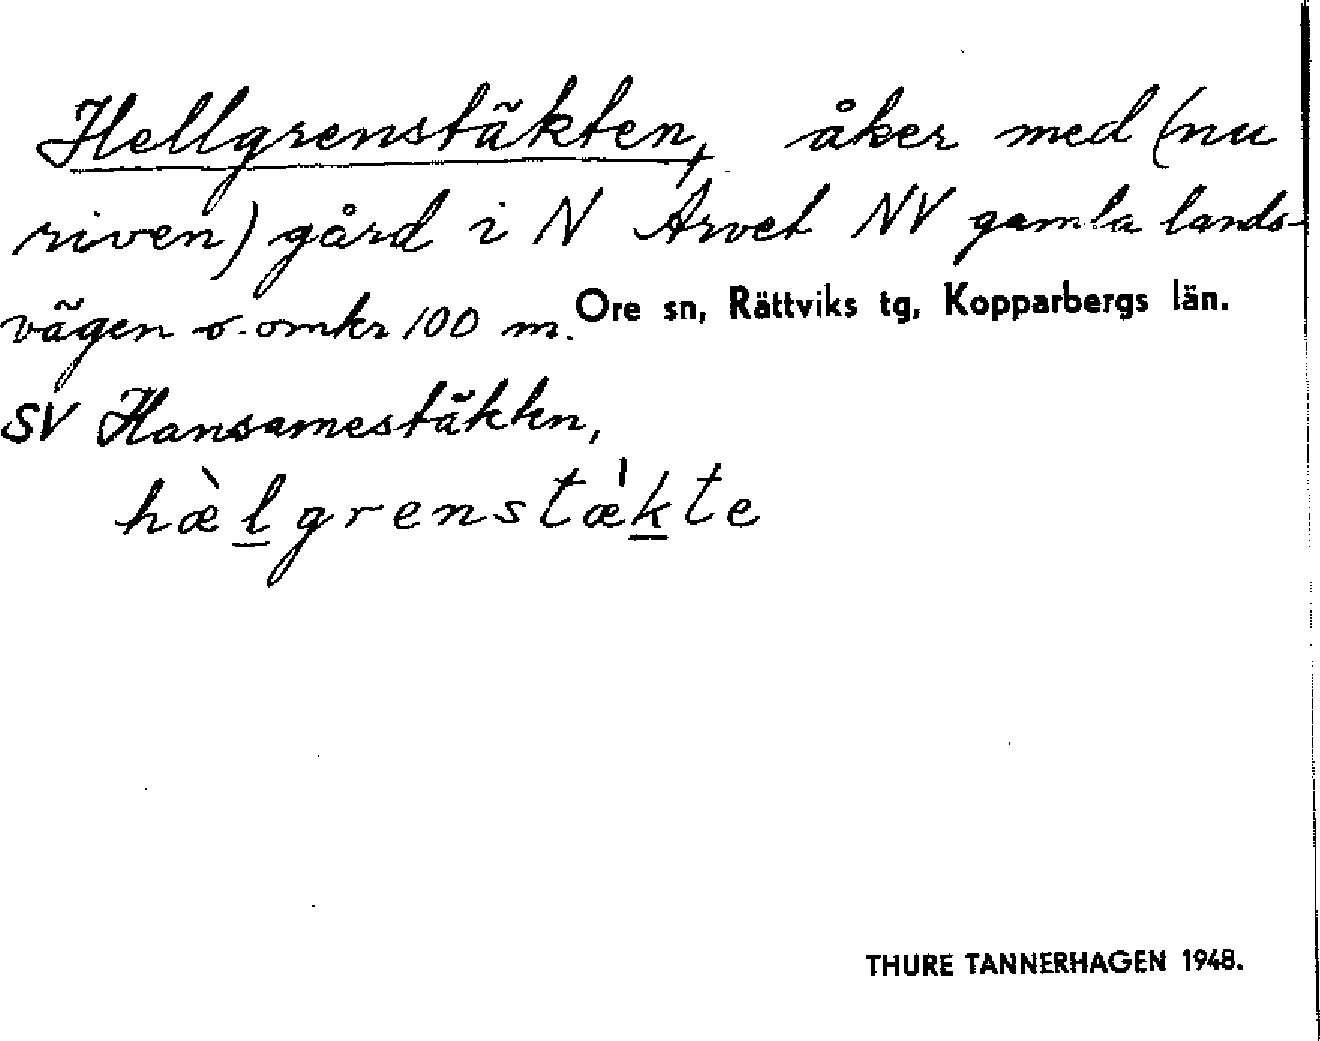 Hellgrenstäkten, åker med (nu
riven) gård i N Arvet NV gamla lands-
vägen o. omkr 100 m.
Ore sn, Rättviks tg, Kopparbergs län.
SV Hansamestäkten,
hæ̀lgrenstæ̍kte
THURE TANNERHAGEN 1948.